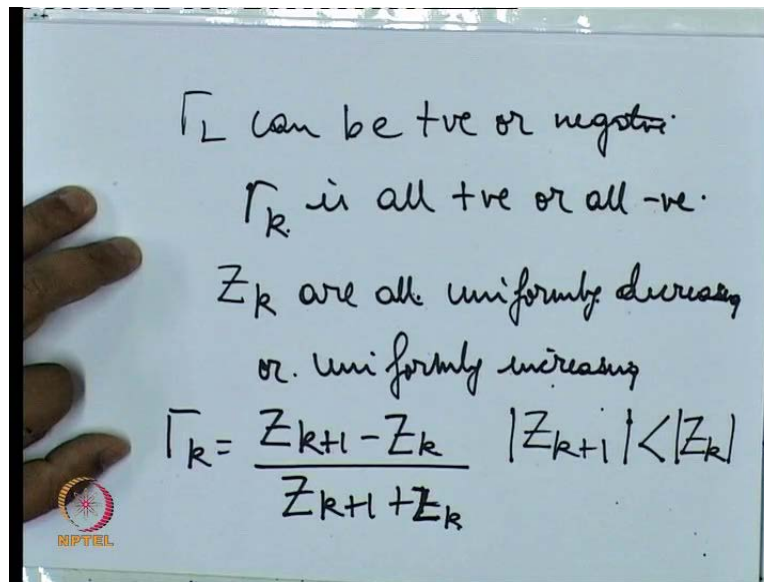 Γ_L can be +ve or negative.
Γ_k is all +ve or all -ve.
Z_k are all uniformly decreasing
or uniformly increasing
Γ_k = (Z_{k+1} - Z_k) / (Z_{k+1} + Z_k)   |Z_{k+1}| < |Z_k|
NPTEL